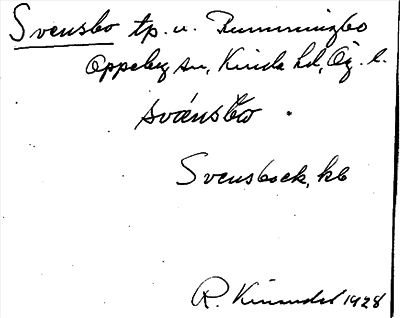 Svensbo tp. u. Rumminsbo
Oppeby sn, Kinda hd, Ög. l.
svänsbo .
Svensbock, kb
R. Kinander 1928